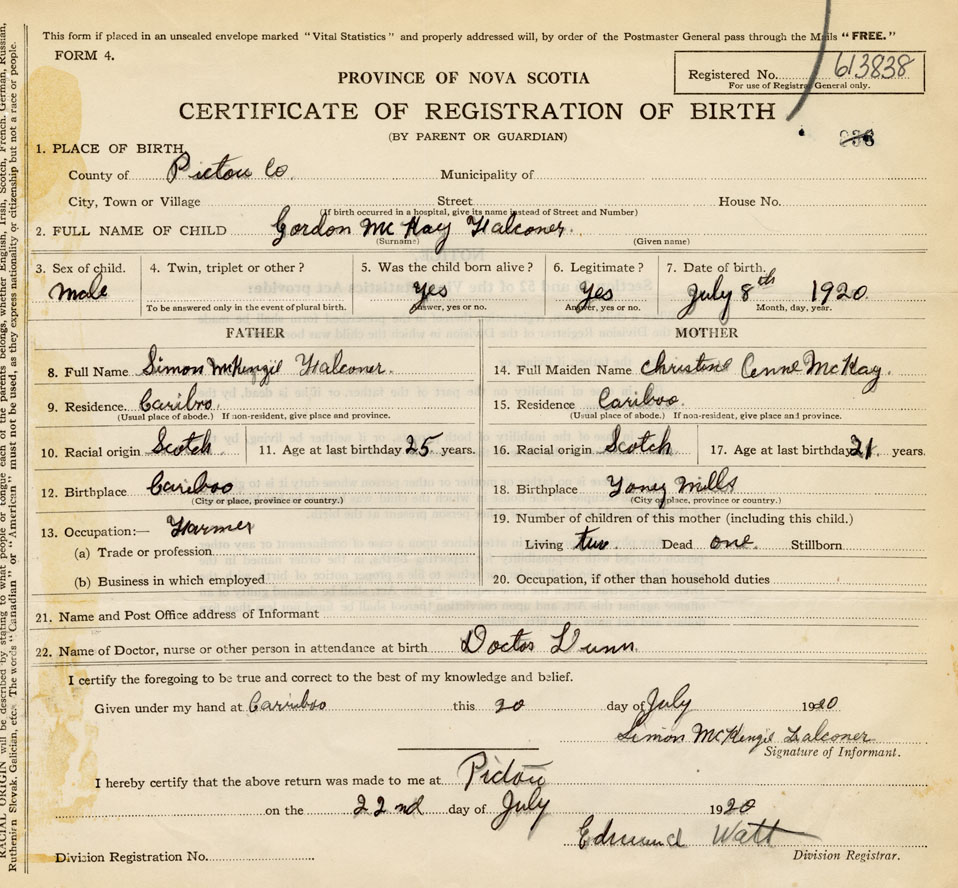 This form if placed in an unsealed envelope marked "Vital Statistics" and properly addressed will, by order of the Postmaster General pass through the Mails "FREE."
FORM 4.
Registered No. 613838
For use of Registrar General only.
PROVINCE OF NOVA SCOTIA
CERTIFICATE OF REGISTRATION OF BIRTH
(BY PARENT OR GUARDIAN)
1. PLACE OF BIRTH,
County of Pictou Co. Municipality of
City, Town or Village Street House No.
(If birth occurred in a hospital, give its name instead of Street and Number)
2. FULL NAME OF CHILD Gordon McKay Falconer.
(Surname) (Given name)
3. Sex of child. 4. Twin, triplet or other? 5. Was the child born alive? 6. Legitimate? 7. Date of birth.
Male Yes Yes July 8th 1920
To be answered only in the event of plural birth. Answer, yes or no. Answer, yes or no. Month, day, year.
FATHER MOTHER
8. Full Name Simon McKenzie Falconer. 14. Full Maiden Name Christine Anne McKay.
9. Residence. Cariboo. 15. Residence Cariboo.
(Usual place of abode.) If non-resident, give place and province. (Usual place of abode.) If non-resident, give place and province.
10. Racial origin Scotch 11. Age at last birthday 25 years. 16. Racial origin Scotch 17. Age at last birthday 21 years.
12. Birthplace Cariboo 18. Birthplace Toney Mills
(City or place, province or country.) (City or place, province or country.)
13. Occupation:— Farmer 19. Number of children of this mother (including this child.)
(a) Trade or profession Living two Dead one. Stillborn
(b) Business in which employed 20. Occupation, if other than household duties
21. Name and Post Office address of Informant
22. Name of Doctor, nurse or other person in attendance at birth Doctor Dunn.
I certify the foregoing to be true and correct to the best of my knowledge and belief.
Given under my hand at Cariboo this 20 day of July 1920
Simon McKenzie Falconer
Signature of Informant.
I hereby certify that the above return was made to me at Pictou
on the 22nd day of July 1920
Edmund Watt
Division Registration No. Division Registrar.
RACIAL ORIGIN will be described by stating to what people or tongue each of the parents belongs, whether English, Irish, Scotch, French, German, Russian,
Ruthenian Slovak, Galician, etc. The words "Canadian" or "American" must not be used, as they express nationality or citizenship but not a race or people.